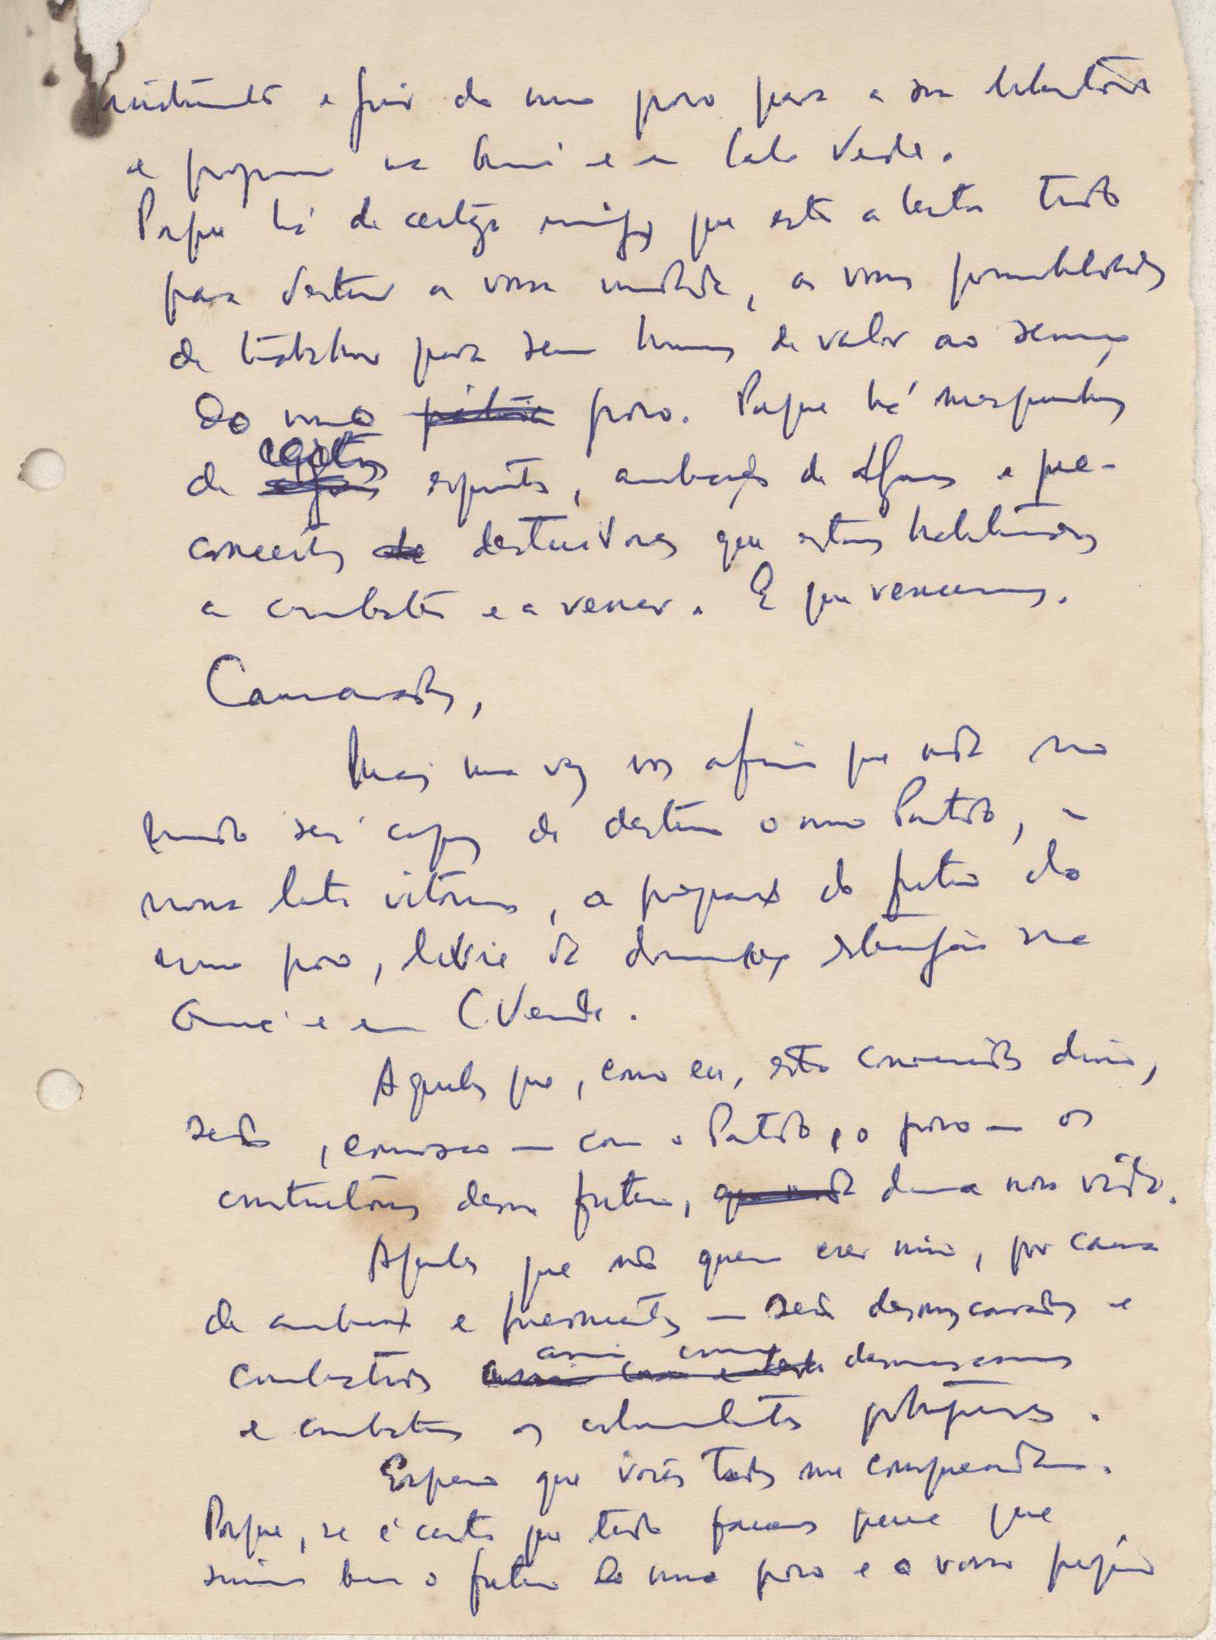 e do nosso povo para a sua libertação
e progresso na Guiné e em Cabo Verde.
Porque há de certeza inimigos que estão a tentar tudo
para destruir a vossa unidade, as vossas possibilidades
de trabalhar para serem homens de valor ao serviço
do nosso pátria povo. Porque há
de certos espíritos, ambições de alguns e pre-
conceitos de destruidores que estamos habilitados
a combater e a vencer. E que venceremos.
Camaradas,
Mais uma vez vos afirmo que nada no
mundo será capaz de destruir o nosso Partido, a
nossa luta vitoriosa, a preparação do futuro do
nosso povo, livre da dominação estrangeira na
Guiné e em C. Verde.
Aqueles que, como eu, estão convencidos disso,
serão, connosco — com o Partido, e o povo — os
construtores desse futuro, duma nova vida.
Aqueles que não querem crer nisso, por causa
de ambição e — serão desmascarados e
combatidos assim como desmascaramos
e combatemos os colonialistas portugueses.
Espero que vocês todos me compreendam.
Porque, se é certo que tudo faremos para que
bem o futuro do nosso povo e o vosso próprio